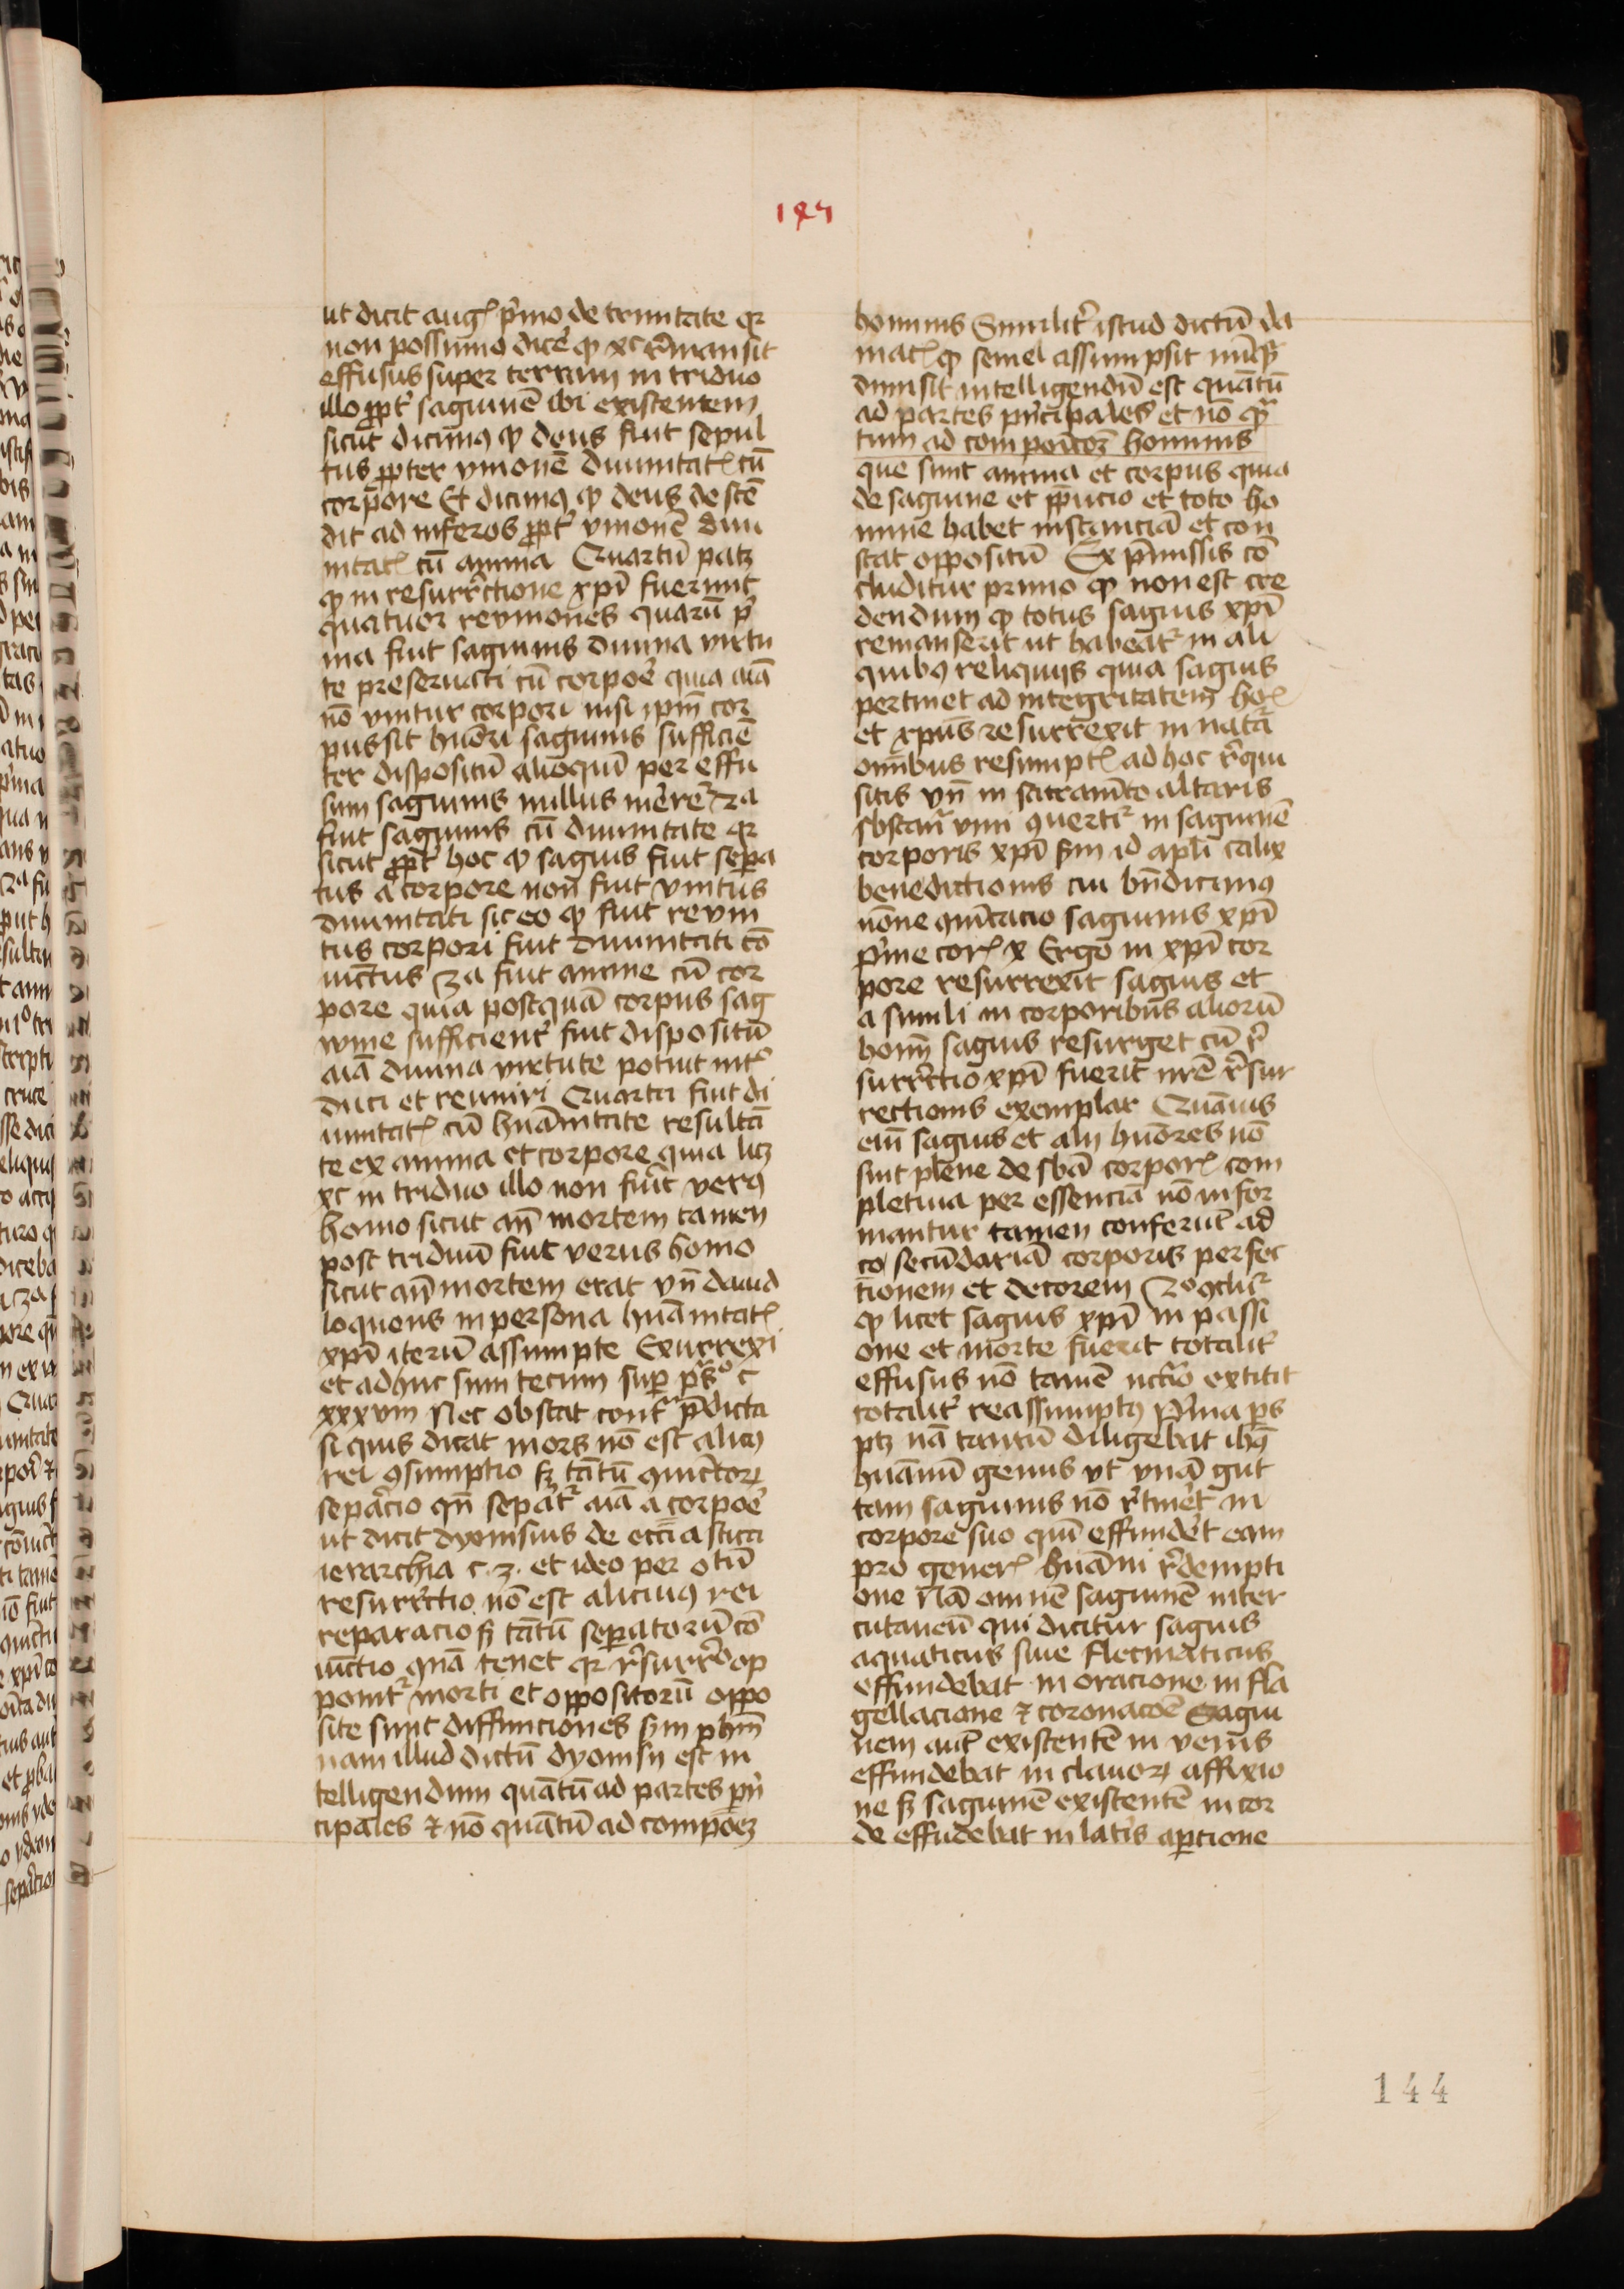 145
ut dicit aug᷒ p̾mo de trinitate qꝛ
non possum᷒ dice᷑ qꝙ xc r̄mansit
effusus super terram in triduo
illo ꝓpt᷑ saguinē ibi existentem
sicut dicim᷒ qꝙ deus fuit sepul
tus ꝓpter vnionē diuinitat᷒ cū
corpore Et dicim᷒ qꝙ deus descē
dit ad inferos ꝓpt᷑ vnionē diui
nitat᷒ cū anima Quartū patꝫ
qꝙ in resurr̄ctione xpī fuerunt
quatuor revniones quarū p̾
ma fuit saguinis diuina virtu
te preseruati cū corpoe᷑ quia aīā
nō vnitur corpori nisi ip̄m cor
pus sit humōri saguinis sufficiē
ter dispositū alioquī per effu
sum saguinis nullus
fuit saguinis cū diuinitate qꝛ
sicut ꝓpt᷑ hoc qꝙ saguis fuit sepa
tus a corpore non fuit vnitus
diuinitati sic eo qꝙ fuit revni
tus corpori fuit diuinitati cō
iunctus 3a fuit anime cū cor
pore quia postquā corpus sag
wine sufficient᷑ fuit dispositū
aīā diuina virtute potuit int᷑o
duci et reuniri Quarta fuit di
uinitat᷒ cū hūānitate resultā
te ex anima et corpore quia licꝫ
xc in triduo illo non fuīt ver᷒
homo sicut an̄ mortem tamen
post triduū fuit verus homo
sicut an̄ mortem erat vn̄ dauid
loquens in persona hūānitat᷒
xpī iterū assumpte Exurrexi
et adhuc sum tecum sup̱ ps̄o c
xxxviii Nec obstat cont᷑ p̄dicta
si quis dicat mors nō est alic᷒
rei ꝯsumptio sꝫ tātū ꝯiūctoꝝ
sepācio qn̄ sepāt᷑ aīā a corpoe᷑
ut dicit dyonisius de ecc̄iastica
ierarchia c.3. et ideo per otū
resurr̄ctio nō est alicui᷒ rei
reparacio sꝫ tātū sep̱atorū cō
iūctio quā tenet qꝛ r̄surr̄o op
ponit᷑ morti et oppositorū oppo
site sunt diffinciones scd̄m ph̄m
nam illud dictū dyonisij est in
telligendum quātū ad partes pn̄
cipales ⁊ nō quātū ad compōeꝫ
hominis Similit᷑ istud dictū da
mat᷒ qꝙ semel assumpsit nūq̄
dimisit intelligendū est quātū
ad partes pn̄cipales et nō qꝙ
tum ad componēteꝫ hominis
que sunt anima et corpus quia
de saguine et p̄pucio et toto ho
mine habet instanciā et con
stat oppositū Ex p̄missis cō
cluditur primo qꝙ non est cre
dendum qꝙ totus saguis xpī
remanserit ut habeat᷑ in ali
quib᷒ reliquijs quia saguis
pertinet ad integritatem ho᷒
et xpūs resurrexit in nat᷑a
omībus resumpt᷒ ad hoc r̄qui
sitis vn̄ in sacramēto altaris
sbstan᷑ vini ꝯuertit᷑ in saguinē
corporis xpī scd̄m id apl̄i calix
benedictionis cui bn̄dicim᷒
nōne ꝯmūicacio saguinis xpī
p̾me cor᷒ x Ergo in xpī cor
pore resurrexit saguis et
a simili in corporibus aliorū
homī saguis resurget cū r̄
surr̄ctio xpī fuerit nr̄e r̄sur
rectionis exemplar Quāuis
eni saguis et alij humōres nō
sint plene de sb̄a corpor᷒ com
pletiua per essenciā nō infor
mantur tamen conferūt ad
secūdariā corporis perfec
tionem et decorem 2o ꝯcludit᷑
qꝙ licet saguis xpī in passi
one et morte fuerit totalit᷑
effusus nō tamē extitit
totalit᷑ reassumpt᷒ P̾ma p̱s
ptꝫ nā tantū diligebat ihc̄
hūānū genus vt vnā gut
tam saguinis nō r̄tinēt in
corpore suo quī effunde᷑t eam
pro gener᷒ hūāni r̄dempti
one Nā omnē saguinē inter
cutaneū qui dicitur saguis
aquaticus siue flecmaticus
effundebat in oracione in fla
gellacione ⁊ coronacoē Sagui
nem aut᷑ existentē in venis
effundebat in clauoꝝ affixio
ne sꝫ saguinē existentē in cor
de effūdebat in latis ap̱tione
144